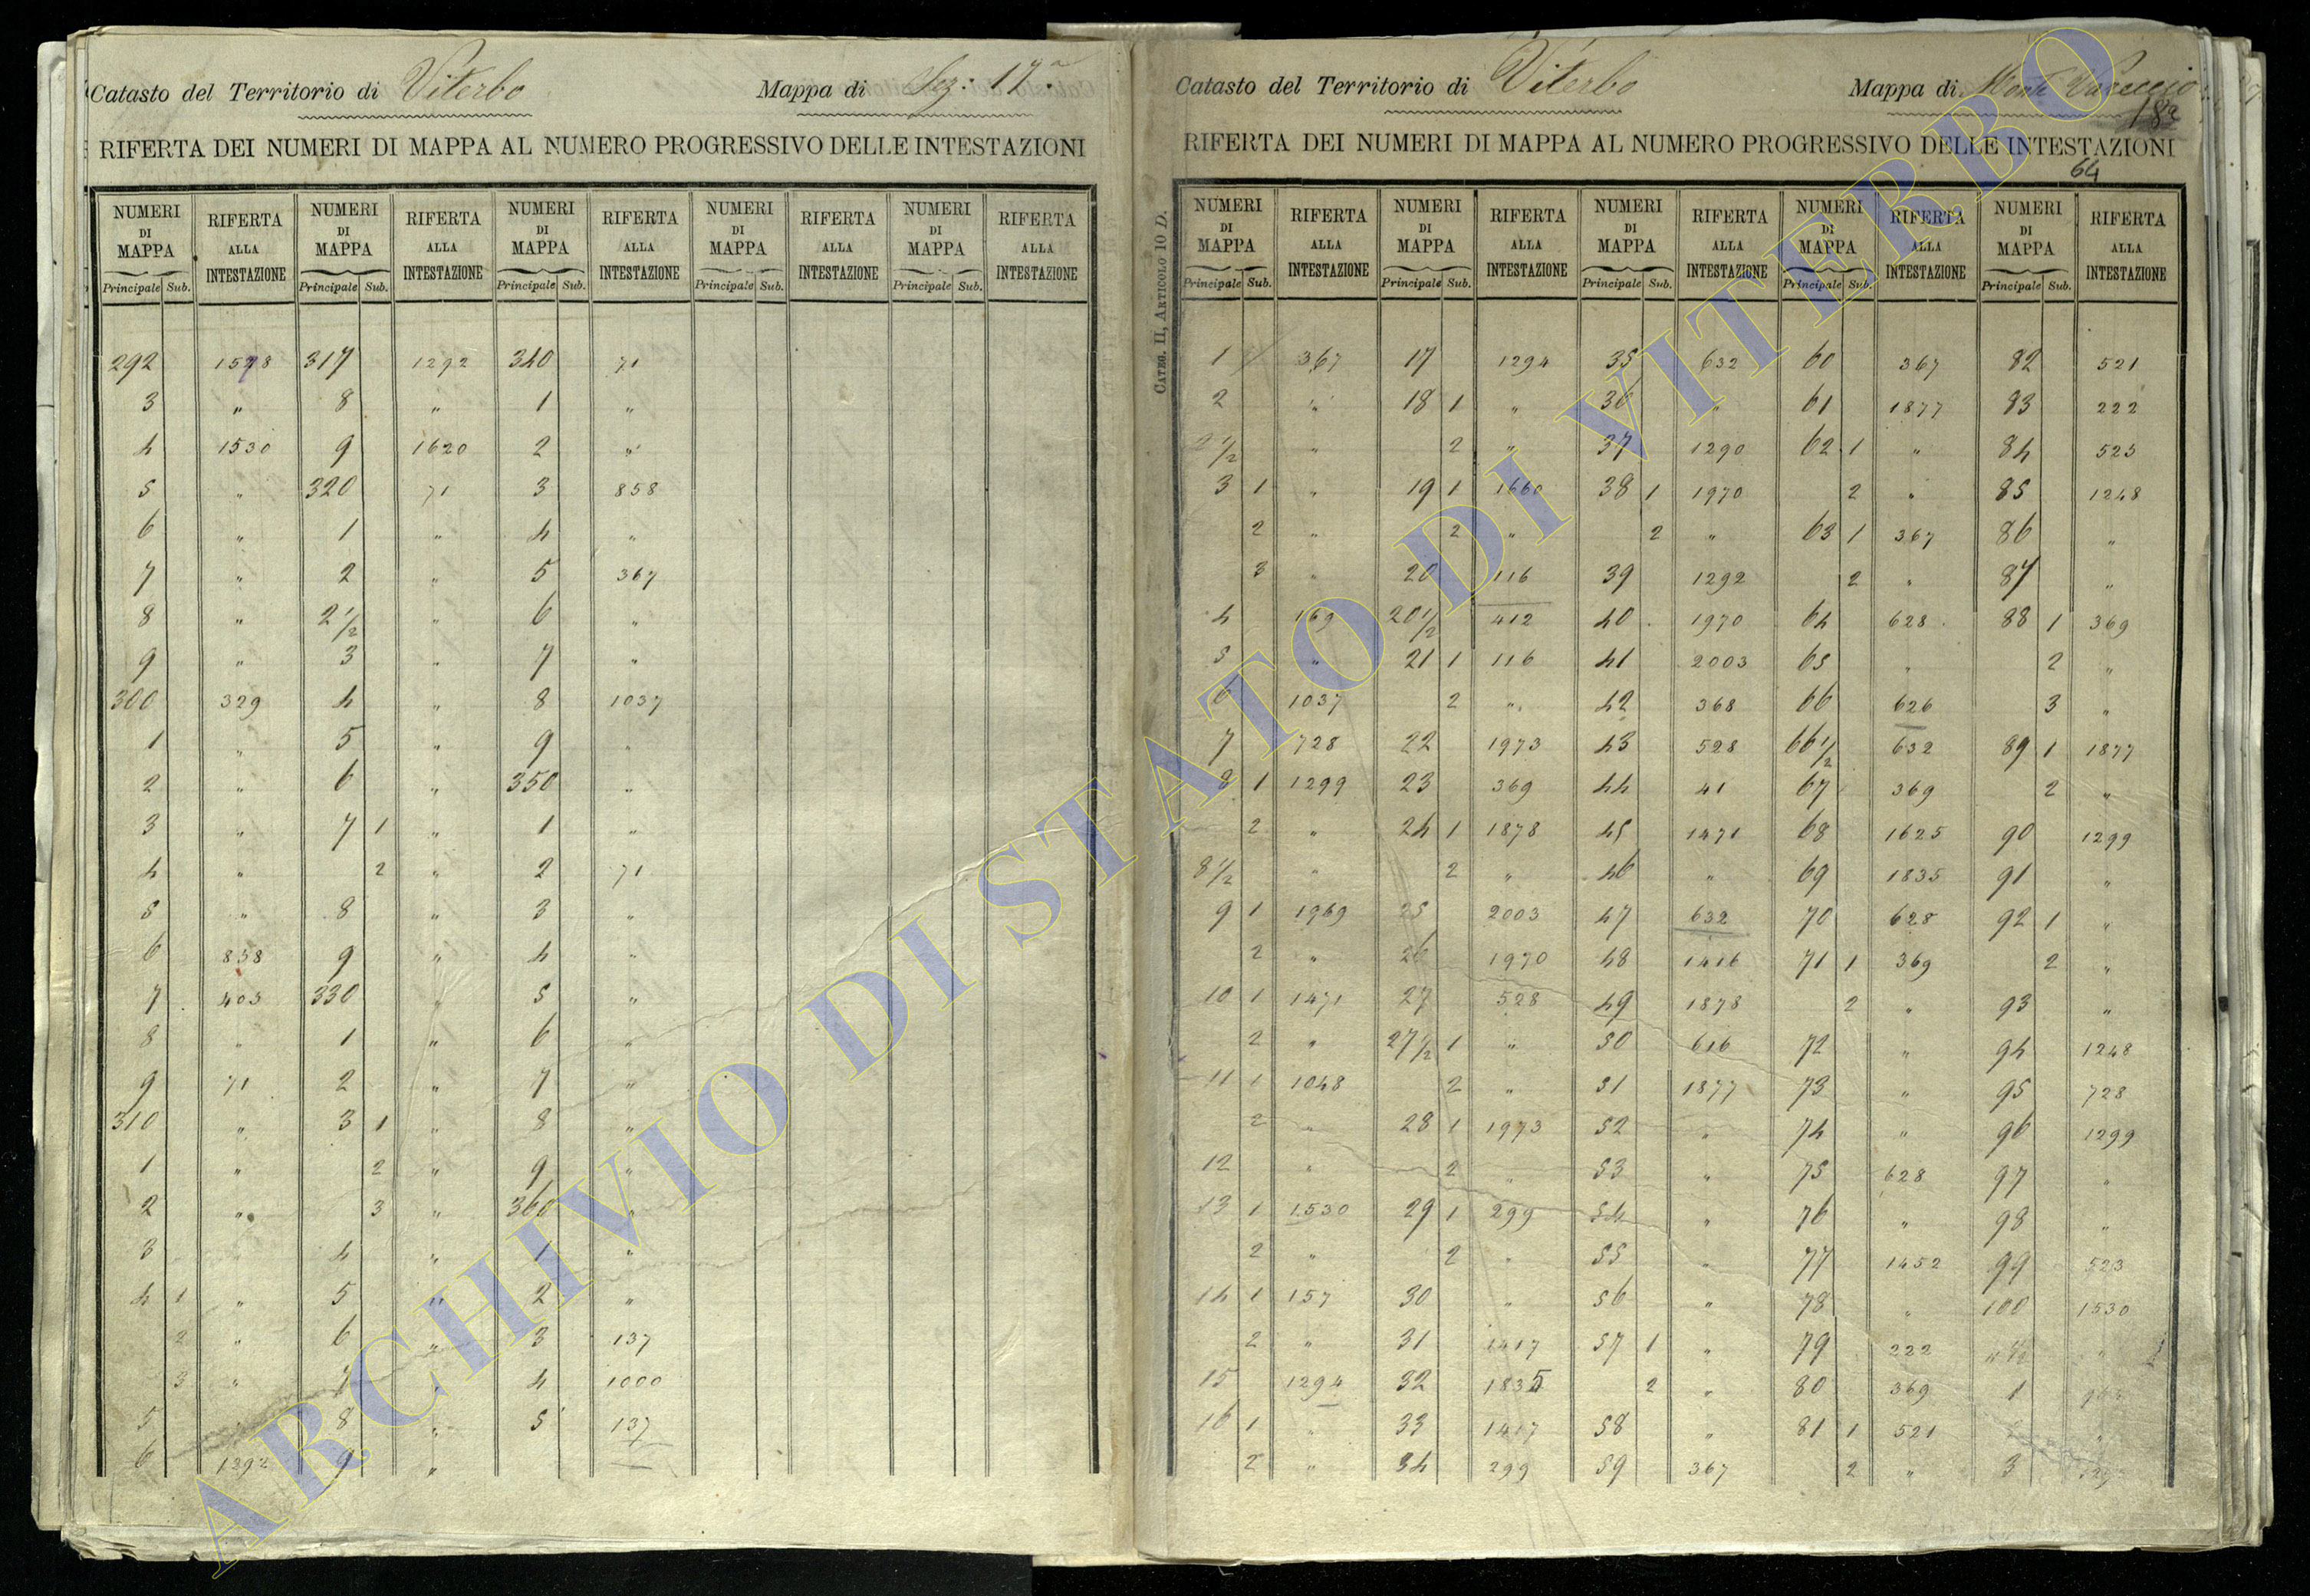 Catasto del Territorio di Viterbo Mappa di Sez: 17a
RIFERTA DEI NUMERI DI MAPPA AL NUMERO PROGRESSIVO DELLE INTESTAZIONI
NUMERI DI MAPPA RIFERTA ALLA INTESTAZIONE NUMERI DI MAPPA RIFERTA ALLA INTESTAZIONE NUMERI DI MAPPA RIFERTA ALLA INTESTAZIONE NUMERI DI MAPPA RIFERTA ALLA INTESTAZIONE NUMERI DI MAPPA RIFERTA ALLA INTESTAZIONE
Principale Sub. Principale Sub. Principale Sub. Principale Sub. Principale Sub.
292 1598 317 1292 340 71
3 " 8 " 1 "
4 1530 9 1620 2 "
5 " 320 71 3 858
6 " 1 " 4 "
7 " 2 " 5 367
8 " 2 1/2 " 6 "
9 " 3 " 7 "
300 329 4 " 8 1037
1 " 5 " 9 "
2 " 6 " 350 "
3 " 7 1 " 1 "
4 " 2 " 2 71
5 " 8 " 3 "
6 858 9 " 4 "
7 403 330 " 5 "
8 " 1 " 6 "
9 71 2 " 7 "
310 " 3 1 " 8 "
1 " 2 " 9 "
2 " 3 " 360 "
3 " 4 " 1 "
4 1 " 5 " 2 "
2 " 6 " 3 137
3 " 7 4 1000
5 8 " 5 137
6 1292 9 "
Catasto del Territorio di Viterbo Mappa di Monte
18a
RIFERTA DEI NUMERI DI MAPPA AL NUMERO PROGRESSIVO DELLE INTESTAZIONI
64
CATEG. II, ARTICOLO 10 D.
NUMERI DI MAPPA RIFERTA ALLA INTESTAZIONE NUMERI DI MAPPA RIFERTA ALLA INTESTAZIONE NUMERI DI MAPPA RIFERTA ALLA INTESTAZIONE NUMERI DI MAPPA RIFERTA ALLA INTESTAZIONE NUMERI DI MAPPA RIFERTA ALLA INTESTAZIONE
Principale Sub. Principale Sub. Principale Sub. Principale Sub. Principale Sub.
1 367 17 1294 35 632 60 367 82 521
2 " 18 1 " 36 " 61 1877 83 222
2 1/2 " 2 " 37 1290 62 1 " 84 523
3 1 " 19 1 1660 38 1 1970 2 " 85 1248
2 " 2 " 2 " 63 1 367 86 "
3 " 20 116 39 1292 2 " 87 "
4 169 20 1/2 412 40 1970 64 628 88 1 369
5 " 21 1 116 41 2003 65 " 2 "
6 1037 2 " 42 368 66 626 3 "
7 728 22 1973 43 528 66 1/2 632 89 1 1877
8 1 1299 23 369 44 41 67 369 2 "
2 " 24 1 1878 45 1471 68 1625 90 1299
8 1/2 " 2 " 46 " 69 1835 91 "
9 1 1969 25 2003 47 632 70 628 92 1 "
2 " 26 1970 48 1416 71 1 369 2 "
10 1 1471 27 528 49 1878 2 " 93 "
2 " 27 1/2 1 " 50 616 72 " 94 1248
11 1 1048 2 " 51 1877 73 " 95 728
2 " 28 1 1973 52 " 74 " 96 1299
12 " 2 " 53 " 75 628 97 "
13 1 1530 29 1 299 54 " 76 " 98 "
2 " 2 " 55 " 77 1452 99 523
14 1 157 30 " 56 " 78 " 100 1530
2 " 31 1417 57 1 " 79 222 "
15 1294 32 1835 2 " 80 369 1
16 1 " 33 1417 58 " 81 1 521 "
2 " 34 299 59 367 2 " 3
ARCHIVIO DI STATO DI VITERBO